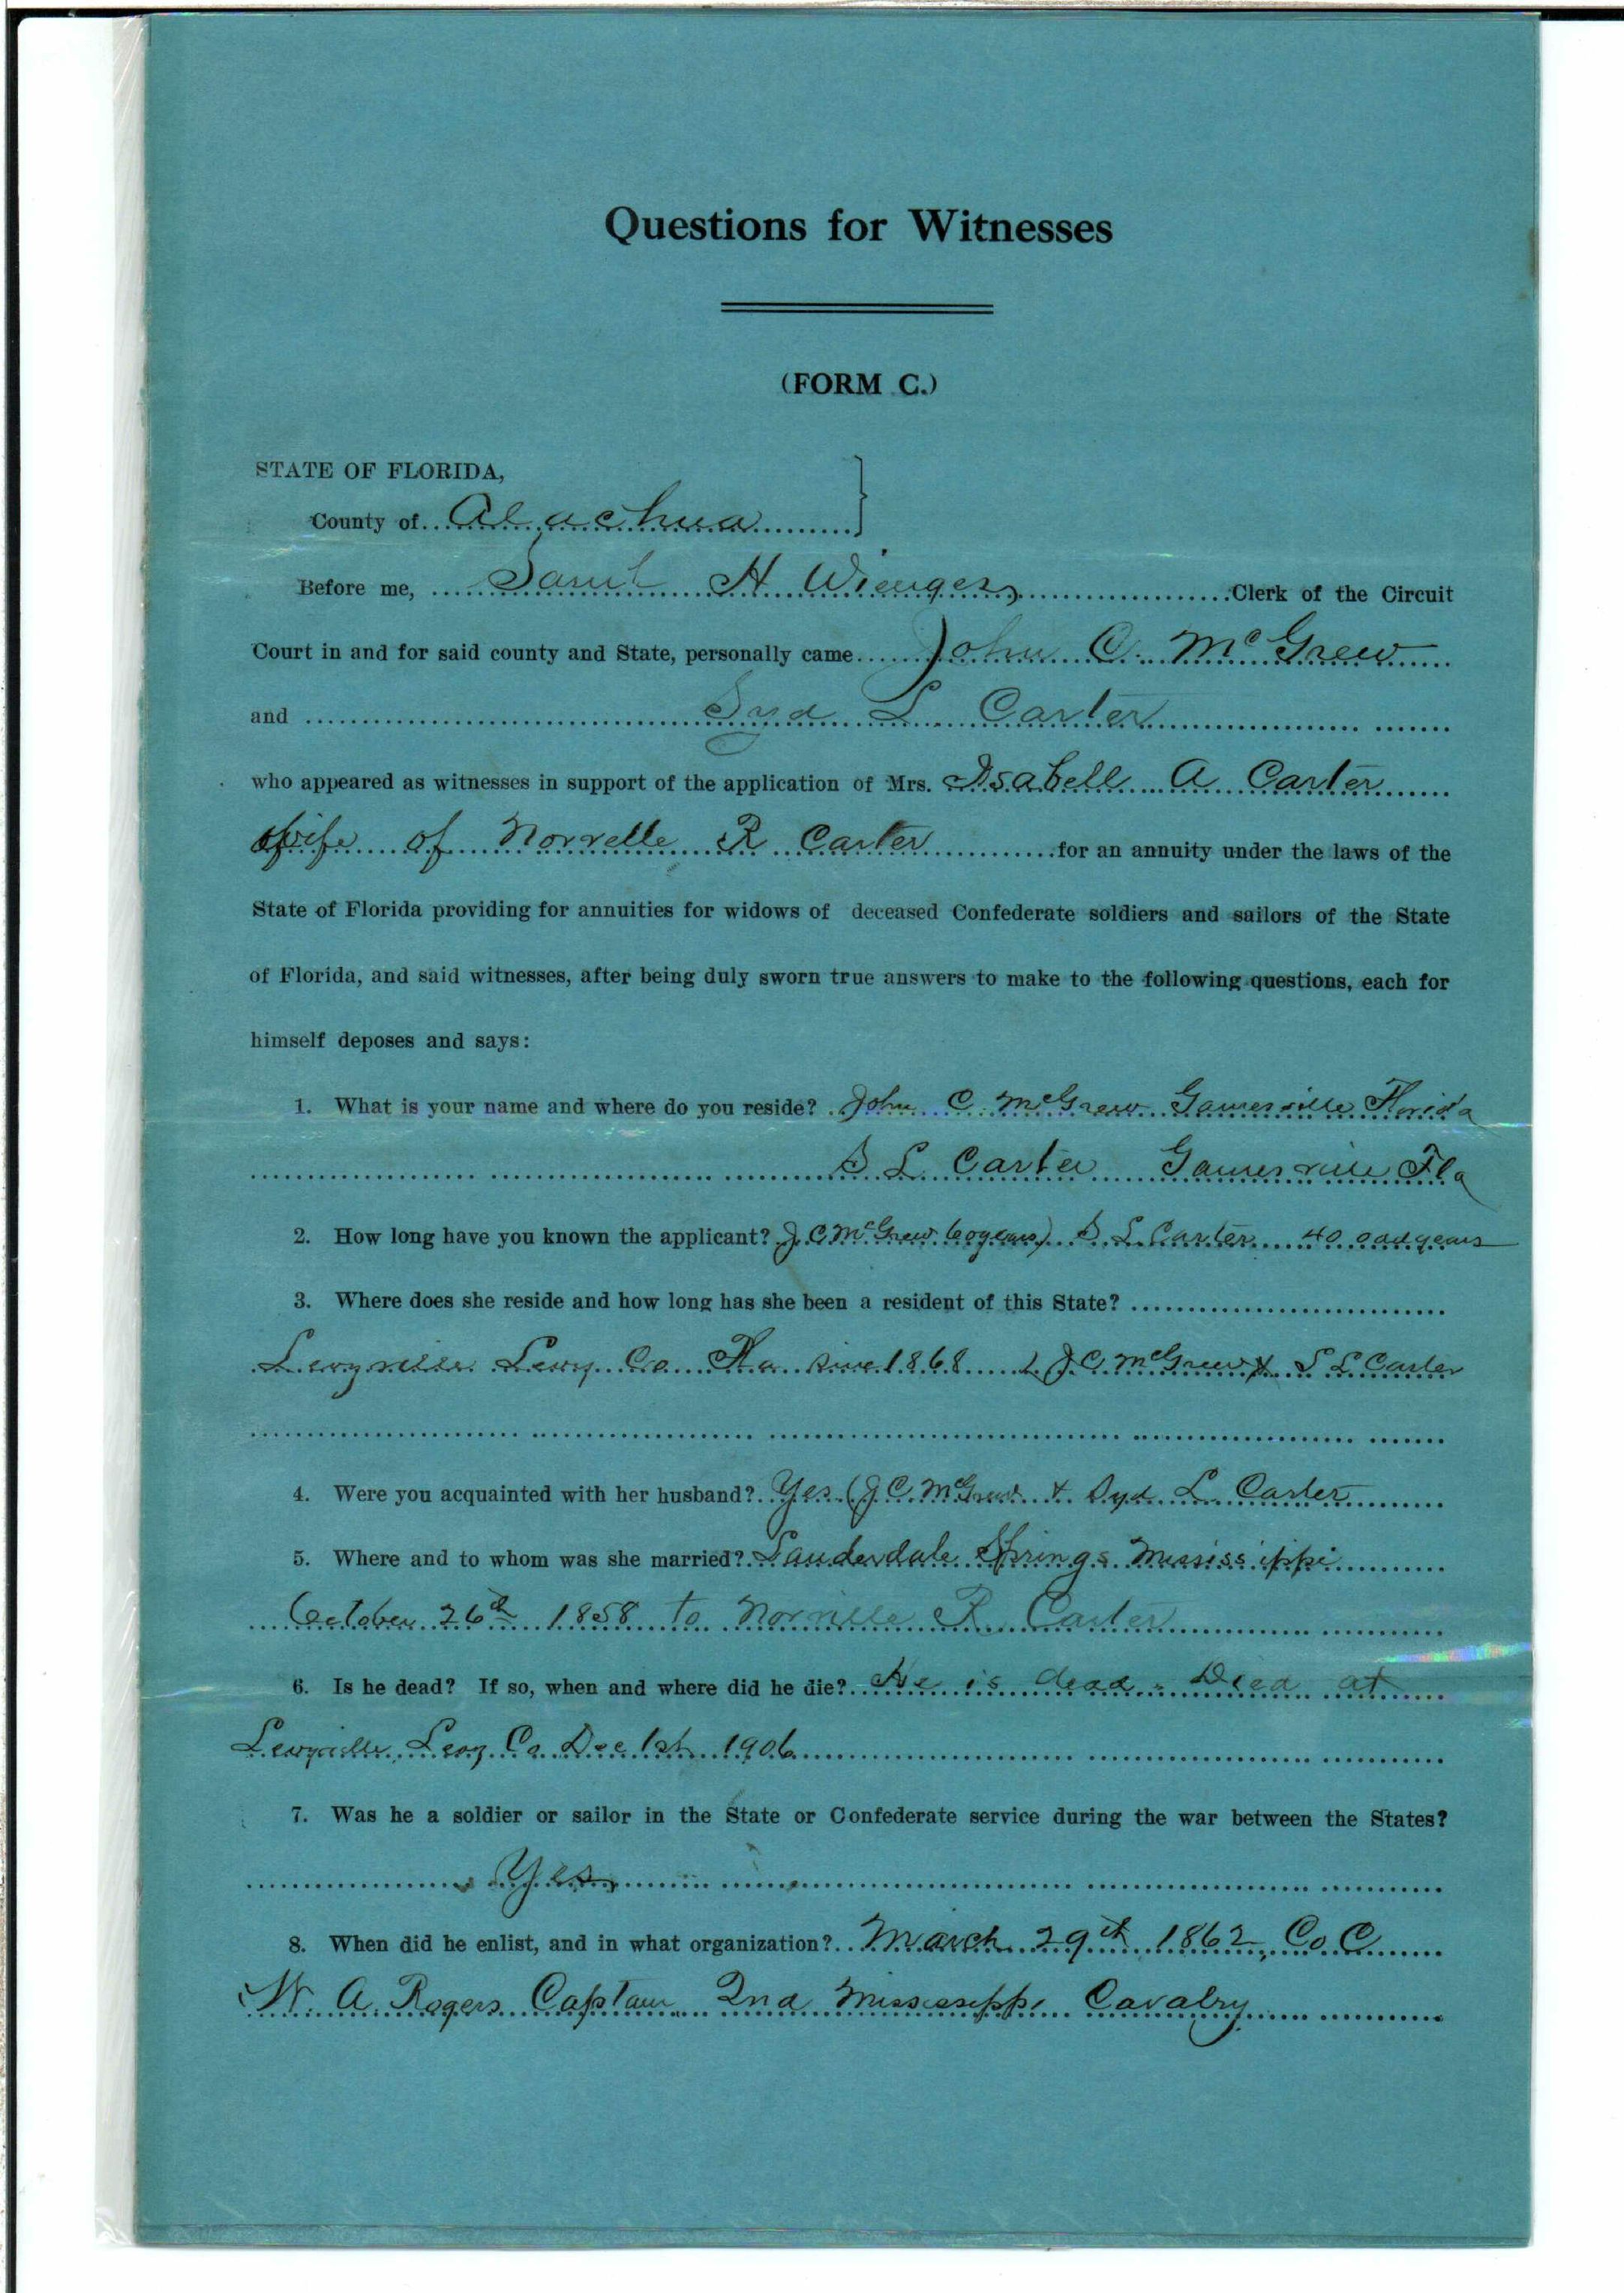 Questions for Witnesses
(FORM C.)
STATE OF FLORIDA,
County of Alachua
Before me, Saml H Wienges, Clerk of the Circuit
Court in and for said county and State, personally came John C. McGrew
and Syd L Carter
who appeared as witnesses in support of the application of Mrs. Isabell A Carter
Wife of Norvelle R Carter for an annuity under the laws of the
State of Florida providing for annuities for widows of deceased Confederate soldiers and sailors of the State
of Florida, and said witnesses, after being duly sworn true answers to make to the following questions, each for
himself deposes and says:
1. What is your name and where do you reside? John C McGrew Gainesville Florida
S L Carter Gainesville Fla
2. How long have you known the applicant? J. C McGrew 60 years) S L Carter 40 odd years
3. Where does she reside and how long has she been a resident of this State?
Levyville Levy Co Fla since 1868 J C McGrew & S L Carter
4. Were you acquainted with her husband? Yes (J C. McGrew & Syd L Carter
5. Where and to whom was she married? Lauderdale Springs Mississippi
October 26th 1858 to Norville R Carter
6. Is he dead? If so, when and where did he die? He is dead. Died at
Levyville, Levy Co Dec 1st 1906
7. Was he a soldier or sailor in the State or Confederate service during the war between the States?
Yes
8. When did he enlist, and in what organization? March 29th 1862, Co C
W. A. Rogers Captain 2nd Mississippi Cavalry